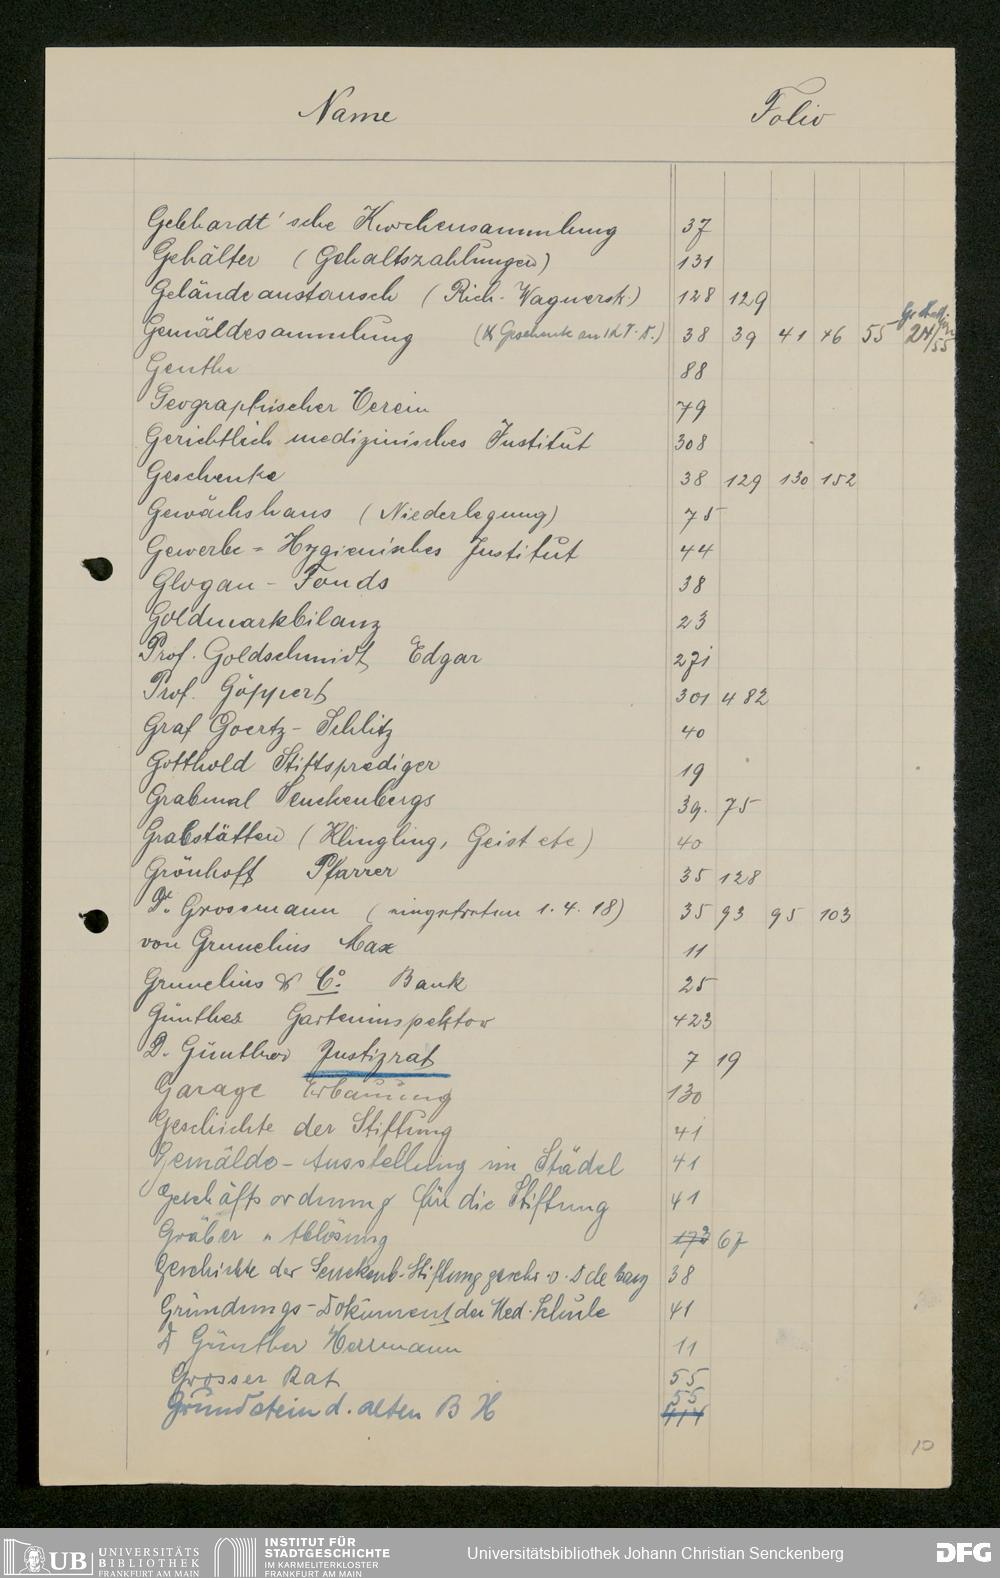 Name Folio
Gebhardt'sche Knochensammlung 37
Gehälter (Gehaltszahlungen) 131
Geländeaustausch (Rich. Wagnerstr.) 128 129
Gemäldesammlung 38 39 41 46 55 24/55
Genthe 88
Geographischer Verein 79
Gerichtlich medizinisches Institut 308
Geschenke 38 129 130 152
Gewächshaus (Niederlegung) 75
Gewerbe = Hygienisches Institut 44
Glogau - Fonds 38
Goldmarkbilanz 23
Prof. Goldschmidt Edgar 271
Prof. Göppert 301 482
Graf Goertz - Schlitz 40
Gotthold Stiftsprediger 19
Grabmal Senckenbergs 39. 75
Grabstätten (Klingling, Geist etc) 40
Grönhoff Pfarrer 35 128
Dr. Grossmann (eingetreten 1.4.18) 35 93 95 103
von Grunelius Max 11
Grunelius & Co. Bank 25
Günther Garteninspektor 423
D. Günther Justizrat 7 19
Garage Erbauung 130
Geschichte der Stiftung 41
Gemälde - Ausstellung im Städel 41
Geschäftsordnung für die Stiftung 41
Gräber " Ablösung 173 67
Geschichte der Senckenb. Stiftung geschr. v. D de Bary 38
Gründungs - Dokument der Med. Schule 41
D Günther Herrmann 11
Grosser Rat 55
Grundstein d. alten B H 55
414
10
UB UNIVERSITÄTS
BIBLIOTHEK
FRANKFURT AM MAIN
INSTITUT FÜR
STADTGESCHICHTE
IM KARMELITERKLOSTER
FRANKFURT AM MAIN
Universitätsbibliothek Johann Christian Senckenberg
DFG